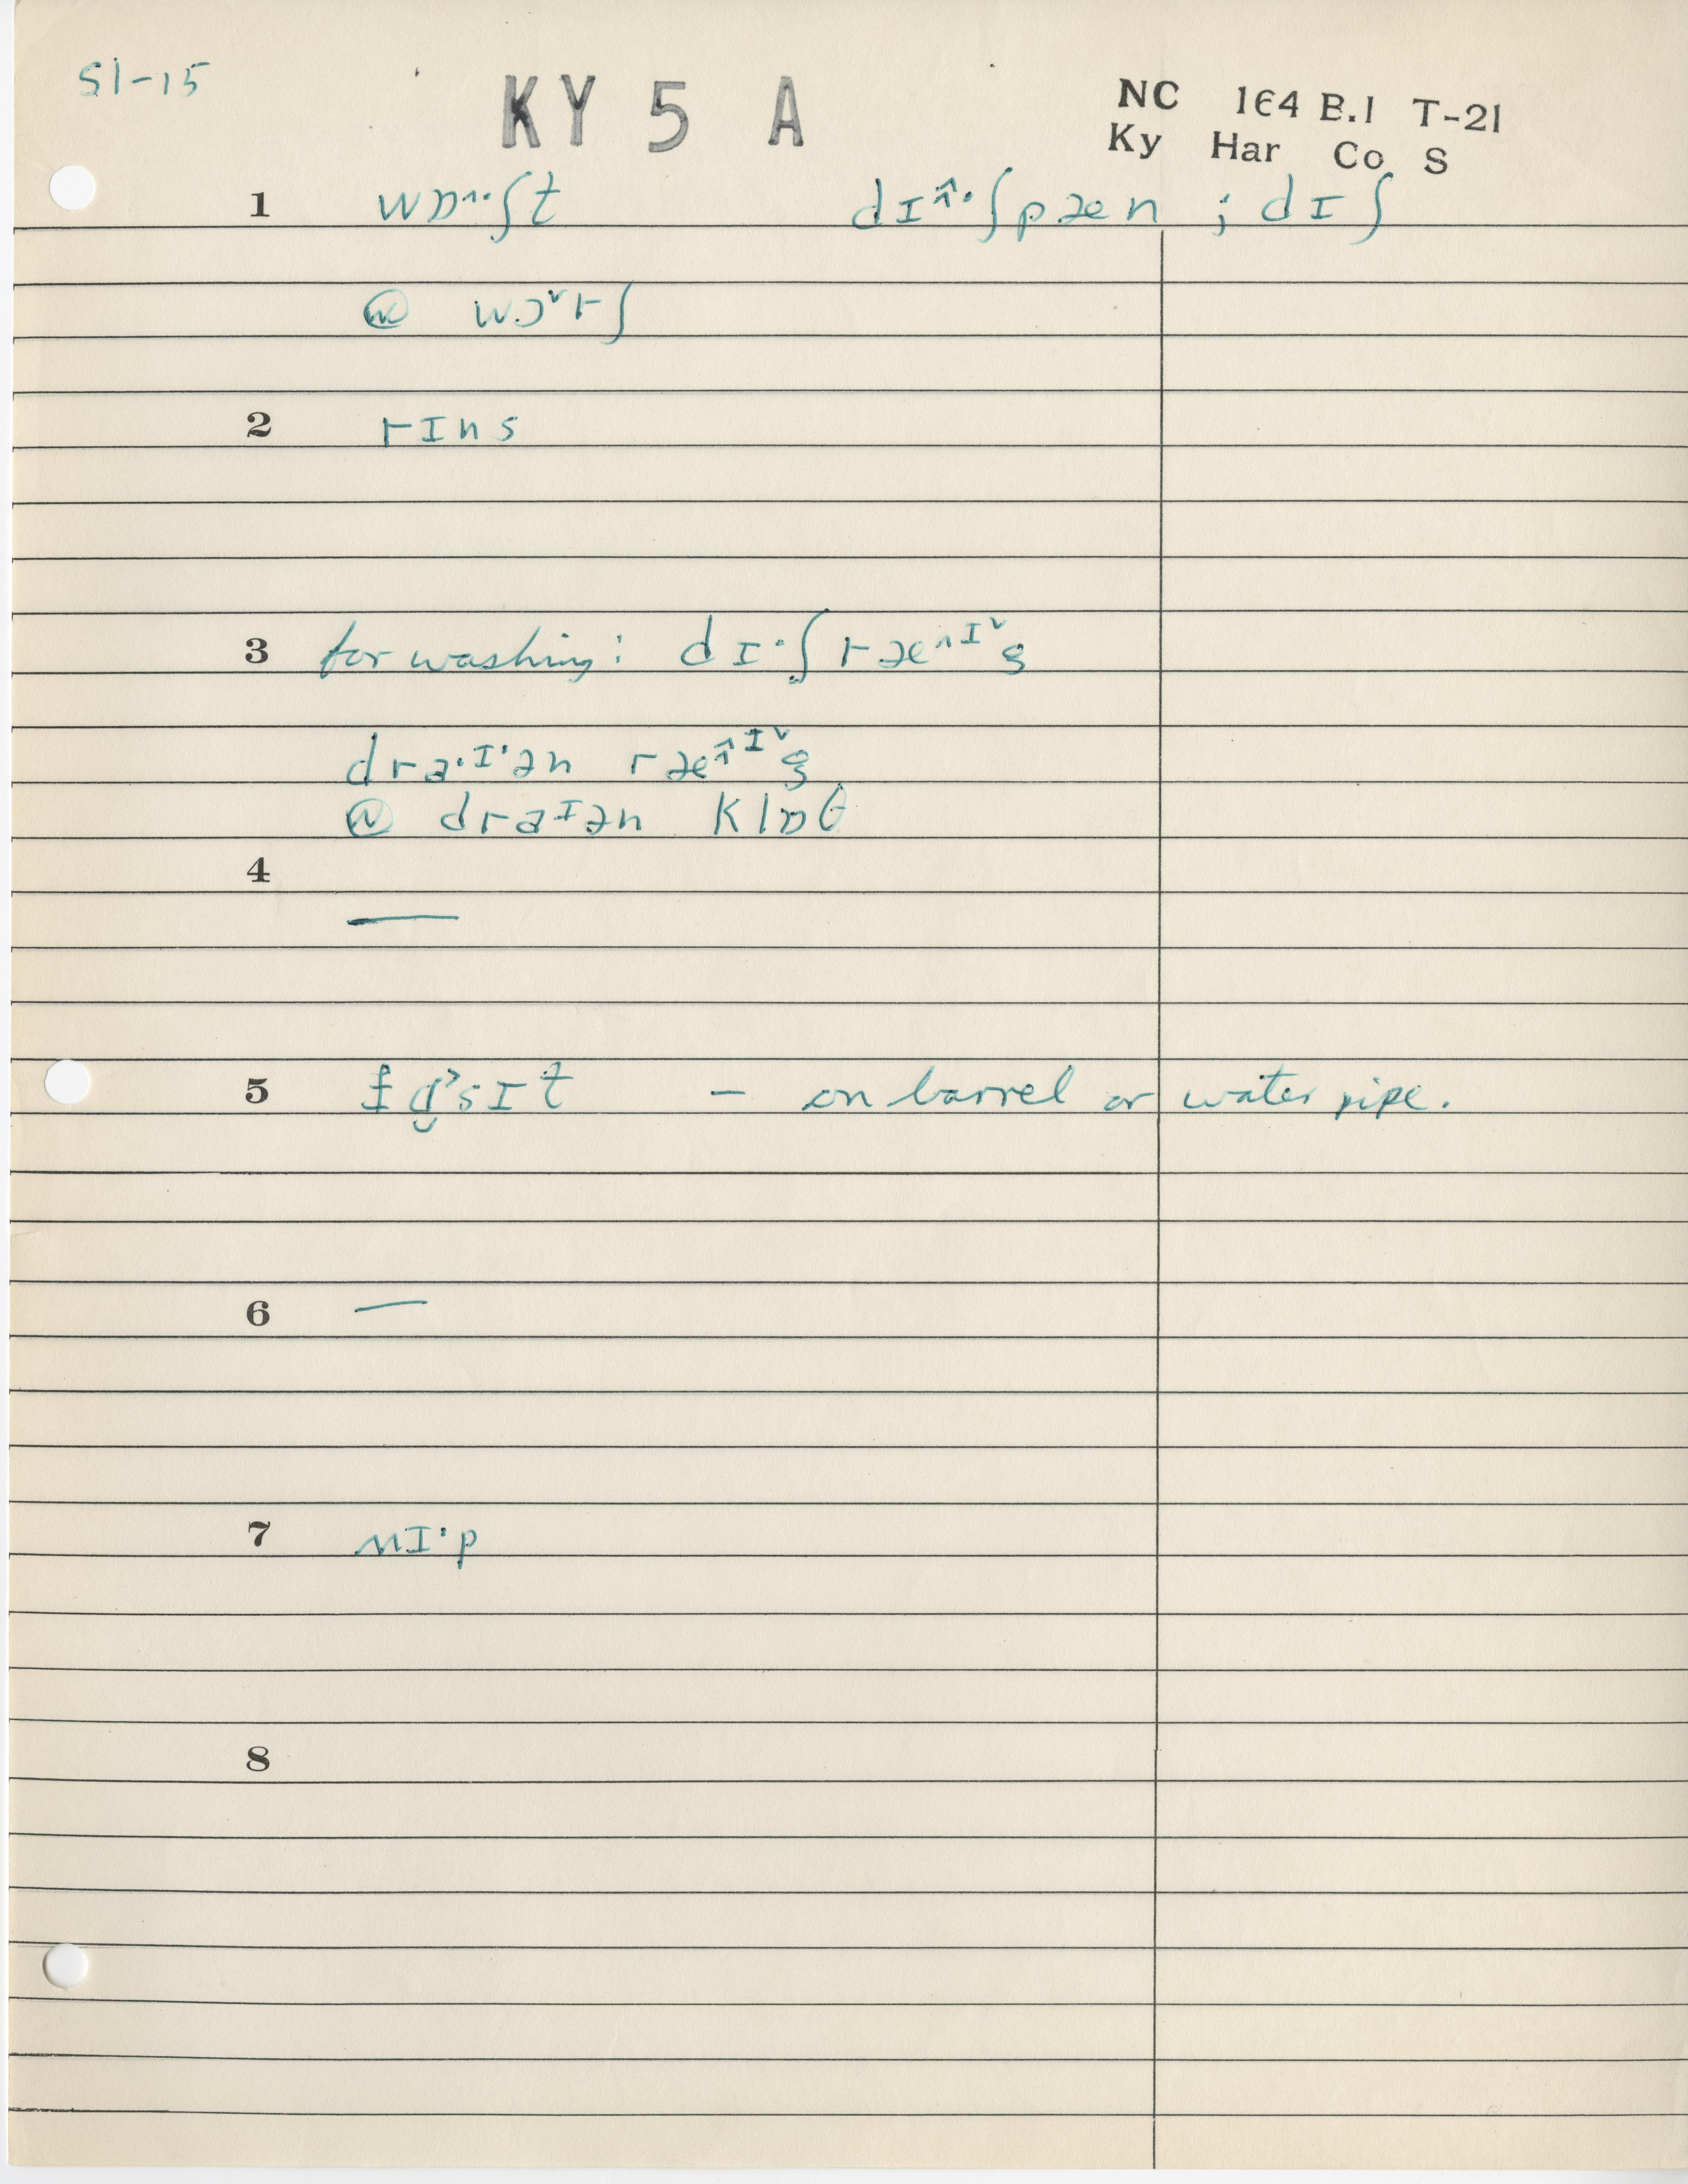 51-15
KY 5 A
NC 164 B.1 T-21
Ky Har Co S
1 wɒ^·ʃt dɪ^·ʃpæn ; dɪʃ
ⓦ wɔ˅rʃ
2 rɪns
3 for washing: dɪ·ʃræ^ɪ˅g
dra·ɪ·ən ræ^ɪ˅g
ⓦ draɪən klɒθ
4 —
5 sɪt — on barrel or water pipe.
6 —
7 ʍɪ·p
8